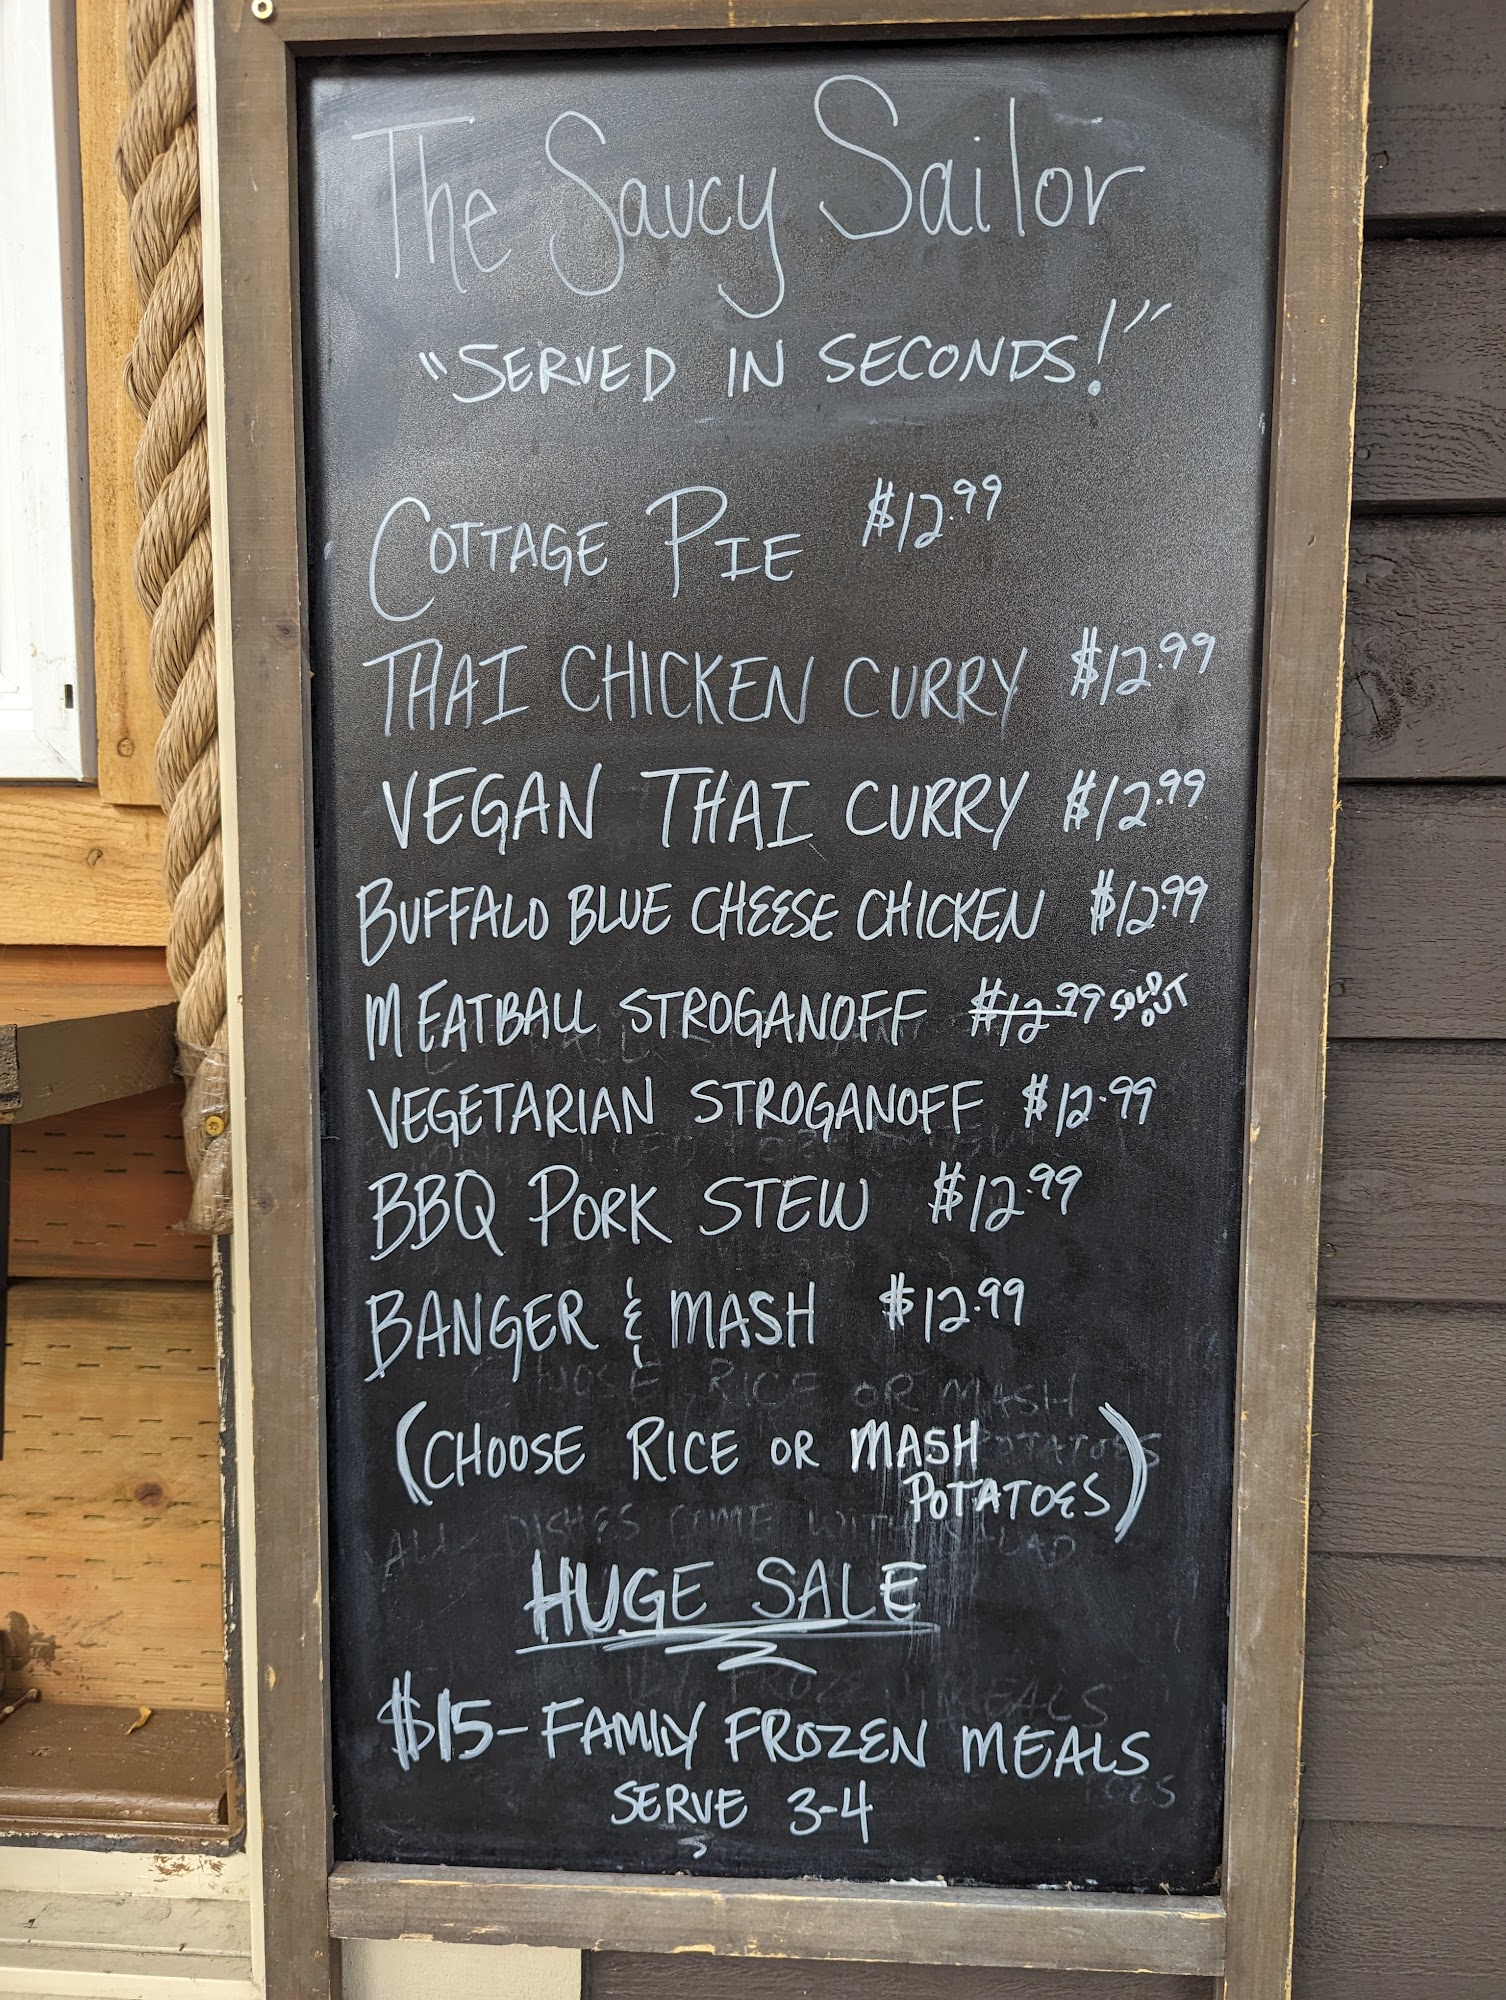 The Saucy Sailor
"SERVED IN SECONDS!"
COTTAGE PIE $12.99
THAI CHICKEN CURRY $12.99
VEGAN THAI CURRY $12.99
BUFFALO BLUE CHEESE CHICKEN $12.99
MEATBALL STROGANOFF $12.99 SOLD OUT
VEGETARIAN STROGANOFF $12.99
BBQ PORK STEW $12.99
BANGER & MASH $12.99
CHOOSE RICE OR MASH
POTATOES
(CHOOSE RICE OR MASH
POTATOES)
ALL DISHES COME WITH SALAD
HUGE SALE
FROZEN MEALS
$15- FAMILY FROZEN MEALS
SERVE 3-4